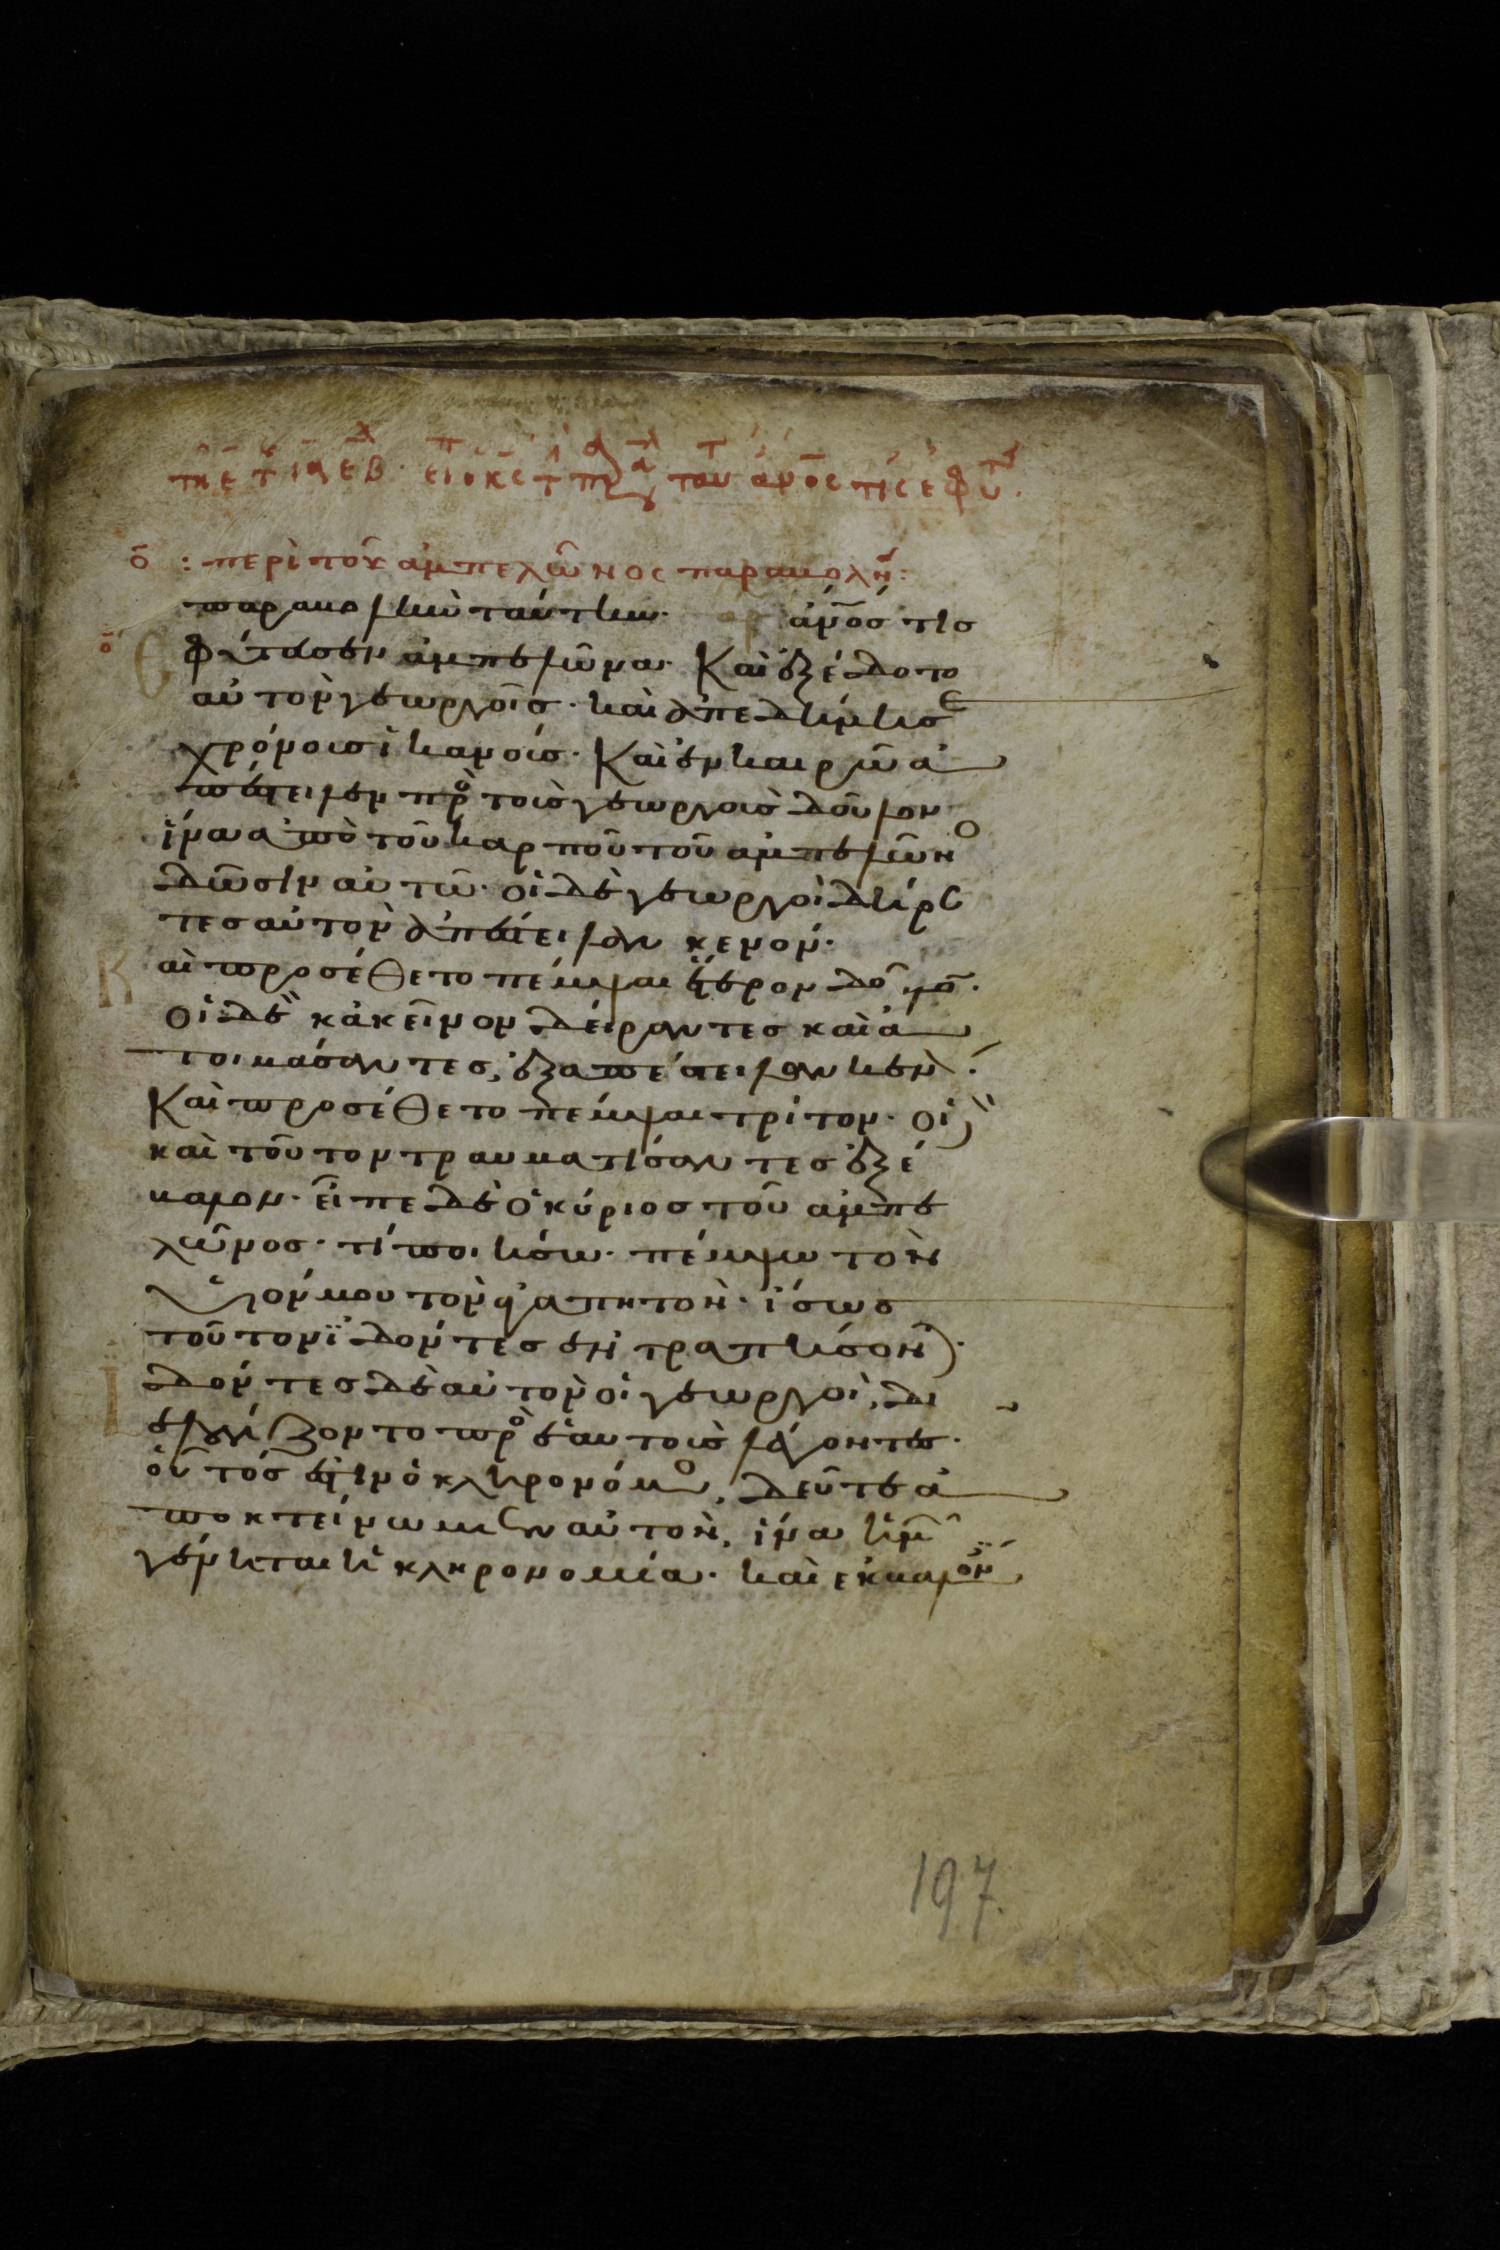 ο : περὶ τοῦ ἀμπελῶνος παραβολή:
παραβολὴν ταύτην. ἄνος τις
ἐφύτευσεν ἀμπελῶνα. Καὶ ἐξέδοτο
αὐτὸν γεωργοῖς. καὶ ἀπεδήμησε
χρόνους ἱκανούς. Καὶ ἐν καιρῶ ἀ
πέστειλεν πρὸ τοὺς γεωργοὺς δοῦλον
ἵνα ἀπὸ τοῦ καρποῦ τοῦ ἀμπελῶνο
δῶσιν αὐτῶ. οἱ δὲ γεωργοὶ δείραν
τες αὐτὸν ἀπέστειλαν κενόν.
Καὶ προσέθετο πέμψαι ἕτερον δοῦλο.
οἱ δὲ κἀκεῖνον δείραντες καὶ ἀ
τιμάσαντες, ἐξαπέστειλαν κενὸ.
Καὶ προσέθετο πέμψαι τρίτον. οἱ δὲ
καὶ τοῦτον τραυματίσαντες ἐξέ
βαλον. εἶπε δὲ ὁ κύριος τοῦ ἀμπε
λῶνος. τί ποιήσω. πέμψω τὸν
υἱόν μου τὸν ἀγαπητὸν. ἴσως
τοῦτον ἰδόντες ἐντραπήσον.
Ἰδόντες δὲ αὐτὸν οἱ γεωργοὶ, δι
ελογίζοντο πρὸ ἑαυτοὺς λέγοντες.
οὗτός ἐστιν ὁ κληρονόμο, δεῦτε ἀ
ποκτείνωμεν αὐτὸν, ἵνα ἡμῶν
γένηται ἡ κληρονομία. καὶ ἐκβαλόν
197.